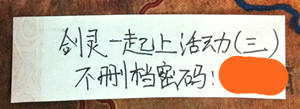 剑灵一起上活动(三)
不删档密码: